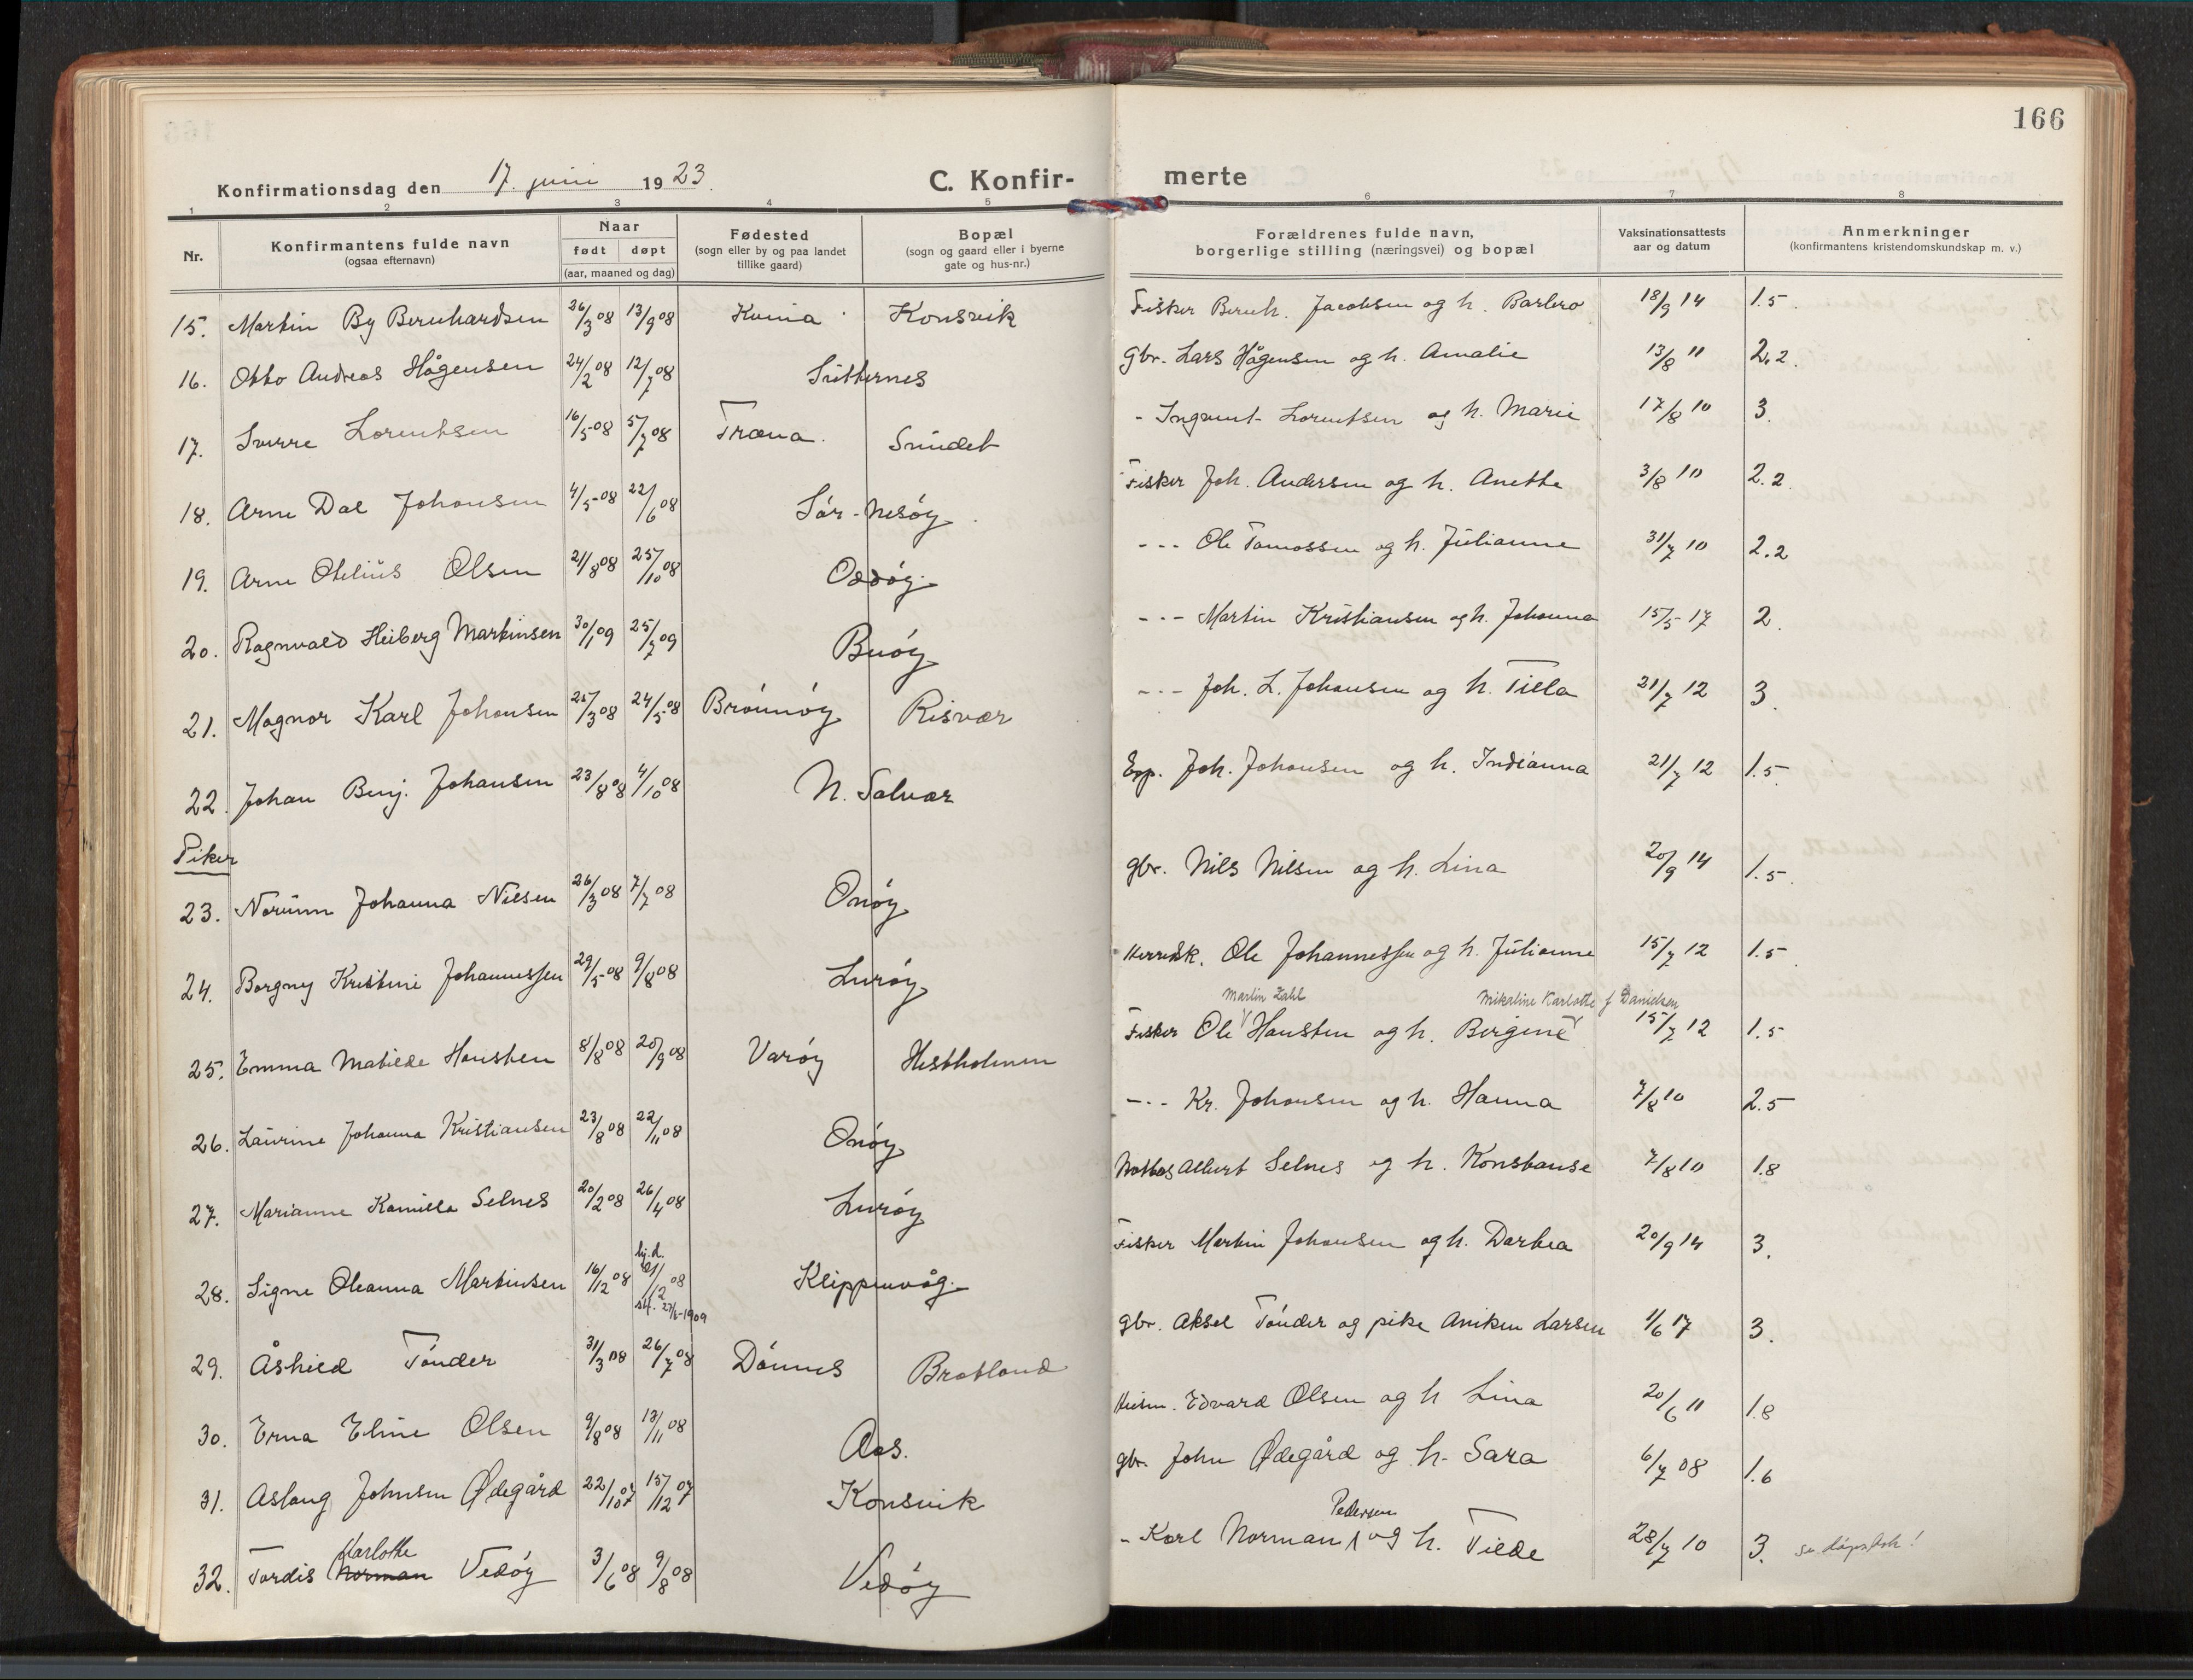 166
Konfirmationsdag den 17. juni 1923.
C. Konfir- merte
1 2 3 4 5 6 7 8
Nr.
Konfirmantens fulde navn
(ogsaa efternavn)
Naar
født døpt
(aar, maaned og dag)
Fødested
(sogn eller by og paa landet
tillike gaard)
Bopæl
(sogn og gaard eller i byerne
gate og hus-nr.)
Forældrenes fulde navn,
borgerlige stilling (næringsvei) og bopæl
Vaksinationsattests
aar og datum
Anmerkninger
(konfirmantens kristendomskundskap m. v.)
15. Martin By Bernhardsen 26/3 08 13/9 08 Kvina Konsvik Fisker Bernh. Jacobsen og h. Barbro 18/9 14 1.5.
16. Otto Andreas Hågensen 24/2 08 12/7 08 Sütternes Gbr. Lars Hågensen og h. Amalie 13/8 11 2.2.
17. Sverre Lorentsen 16/5 08 5/7 08 Træna. Sundet - Ingvart Lorentsen og h. Marie 17/8 10 3.
18. Arne Dal Johansen 4/5-08 22/6 08 Sør-Nesøy. Fisker Joh. Andersen og h. Anette 3/8 10 2.2.
19. Arne Otelius Olsen 21/8 08 25/10 08 Oddøy. --- Ole Tomassen og h. Julianne 31/7 10 2.2
20. Ragnvald Heiberg Martinsen 30/1 09 25/7 09 Buøy --- Martin Kristiansen og h. Johanna 15/5-17 2.
21. Magnor Karl Johansen 25/3 08 24/5-08 Brønnøy Risvær --- Joh. L. Johansen og h. Tilla 21/7 12 3.
22. Johan Benj. Johansen 23/8 08 4/10 08 N. Solvær Exp. Joh. Johansen og h. Indianna 21/7 12 1.5.
Piker
23. Norunn Johanna Nilsen 26/3 08 7/7 08 Onøy gbr. Nils Nilsen og h. Lina 20/9 14 1.5.
24. Borgny Kristine Johannessen 29/5-08 9/8 08 Lurøy Herredsk. Ole Johannessen og h. Julianne 15/7 12 1.5.
Martin Zahl Mikaline Karlotte f Danielsen
25. Emma Matilde Hansten 8/8 08 20/9 08 Varøy Hestholmen Fisker Ole Hansten og h. Bergine 15/7 12 1.5
26. Laurine Johanna Kristiansen 23/8 08 22/11 08 Onøy --- Kr. Johansen og h. Hanna 7/8 10 2.5
27. Marianne Kamilla Selnes 20/2 08 26/4 08 Lurøy Albert Selnes og h. Konstanse 7/8 10 1.8
hj.d.
28. Signe Oleanna Martinsen 16/12 08 21/12 08 Klippenvåg. Fisker Martin Johansen og h. Dortea 20/9 14 3.
stf. 27/6-1909
29. Åshild Tønder 31/3 08 26/7 08 Dønnes Bratland gbr. Aksel Tønder og pike Aniken Larsen 1/6 17 3.
30. Erna Eline Olsen 9/8 08 13/11 08 Aas. Edvard Olsen og h Lina 20/6 11 1.8
31. Aslaug Johnsen Ødegård 22/10 07 15/12 07 Konsvik gbr. John Ødegård og h. Sara 6/7 08 1.6
Karlotte Pedersen
32. Tordis Norman Vedøy 3/6 08 9/8 08 Vedøy - Karl Norman og h. Tilde 28/7 10 3.